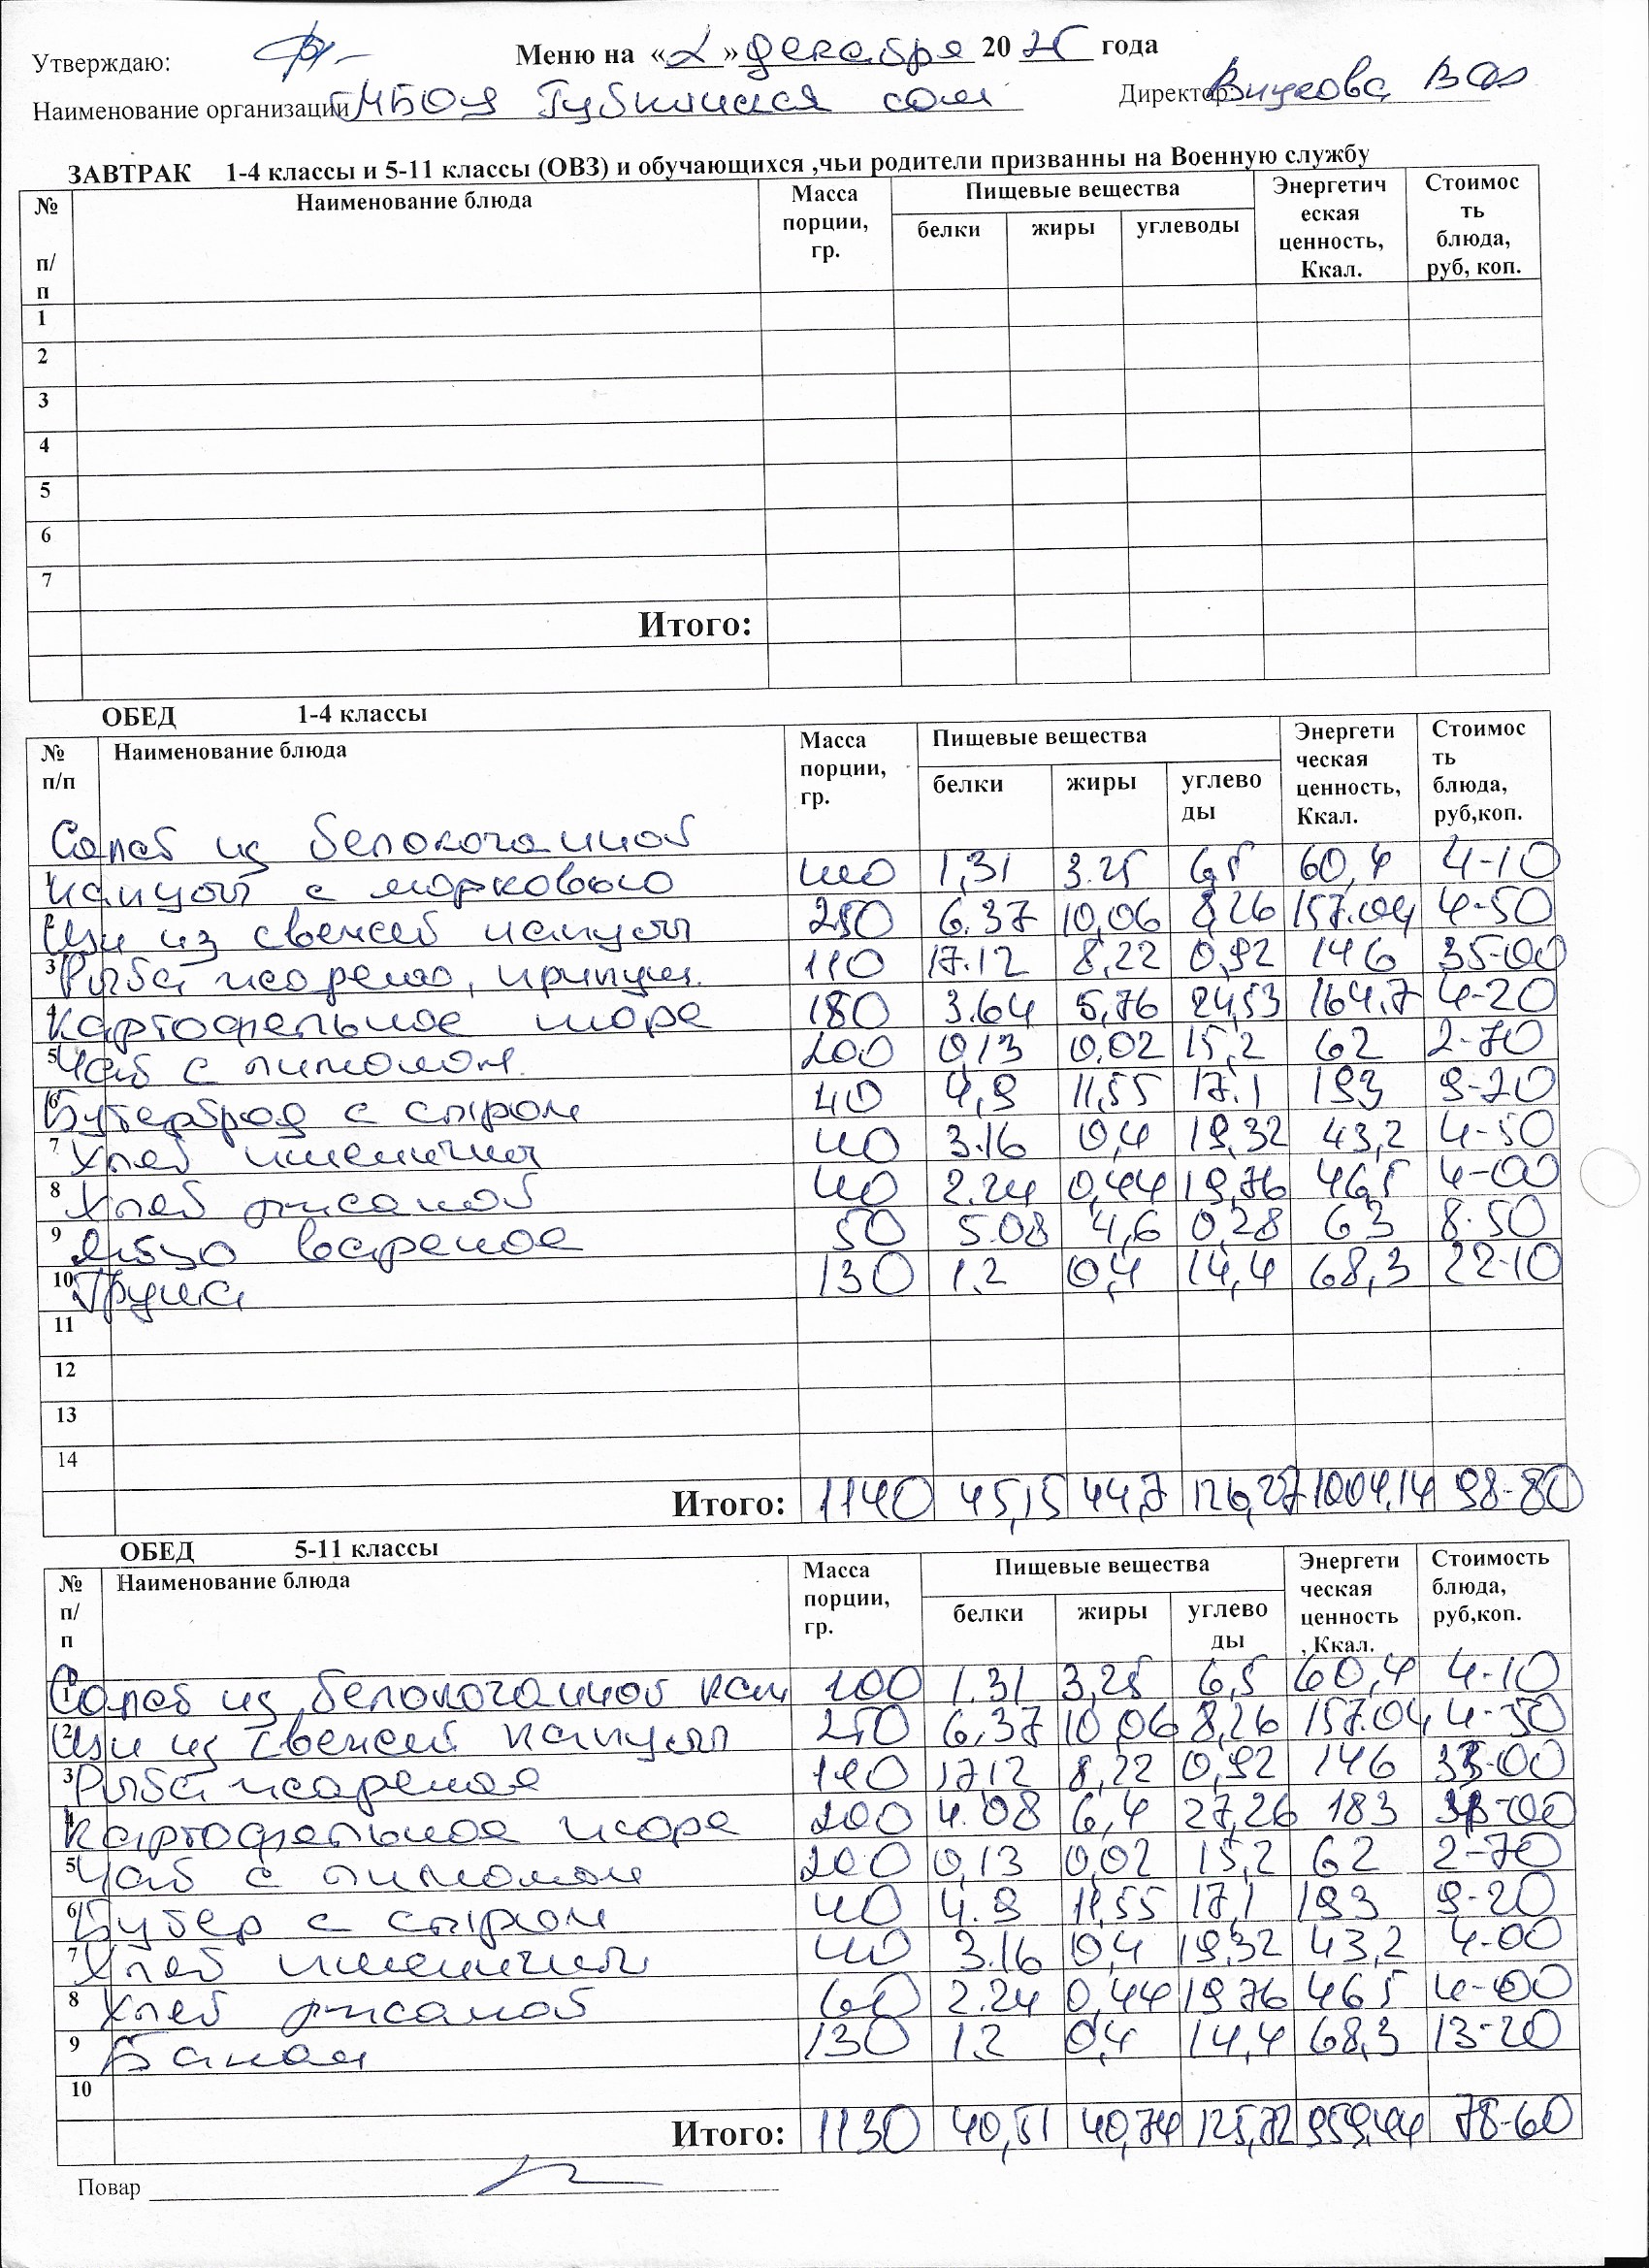 Утверждаю: Меню на «2» декабря 2025 года
Наименование организации МБОУ сош Директор
ЗАВТРАК 1-4 классы и 5-11 классы (ОВЗ) и обучающихся ,чьи родители призванны на Военную службу
№ п/п Наименование блюда Масса порции, гр. Пищевые вещества Энергетическая ценность, Ккал. Стоимость блюда, руб, коп.
белки жиры углеводы
1
2
3
4
5
6
7
Итого:
ОБЕД 1-4 классы
№ п/п Наименование блюда Масса порции, гр. Пищевые вещества Энергетическая ценность, Ккал. Стоимость блюда, руб,коп.
белки жиры углеводы
Салат из белокочанной
1 капусты с морковью 100 1,31 3.25 6,5 60,4 4-10
2 Щи из свежей капусты 250 6.37 10,06 8,26 157.04 4-50
3 Рыба жарено, припущ. 110 17.12 8,22 0,92 146 35-00
4 Картофельное пюре 180 3.64 5,76 24,53 164.7 4-20
5 Чай с лимоном. 200 0,13 0,02 15,2 62 2-70
6 Бутерброд с сыром 40 4,9 11,55 17.1 193 9-20
7 Хлеб пшеничн 40 3.16 0,4 19,32 43,2 4-50
8 Хлеб ржаной 40 2.24 0,44 19,76 46,5 4-00
9 Яйцо вареное 50 5.08 4,6 0,28 63 8-50
10 Груша 130 1.2 0,4 14,4 68,3 22-10
11
12
13
14
Итого: 1140 45,15 44,7 126,27 1004,14 98-80
ОБЕД 5-11 классы
№ п/п Наименование блюда Масса порции, гр. Пищевые вещества Энергетическая ценность, Ккал. Стоимость блюда, руб,коп.
белки жиры углеводы
1 Салат из белокочанной кап 100 1.31 3,25 6,5 60,4 4-10
2 Щи из свежей капусты 250 6,37 10,06 8,26 157.04 4-50
3 Рыба жареная 110 17,12 8,22 0,92 146
4 Картофельное пюре 200 4.08 6,4 27,26 183
5 Чай с лимоном 200 0,13 0,02 15,2 62 2-70
6 Бутер с сыром 40 4.9 11,55 17,1 193 9-20
7 Хлеб пшеничн 40 3.16 0,4 19,32 43,2 4-00
8 Хлеб ржаной 60 2.24 0,44 19,76 46,5 4-00
9 Банан 130 1.2 0,4 14,4 68,3 13-20
10
Итого: 1130 40,51 40,74 125,72 959,44 78-60
Повар